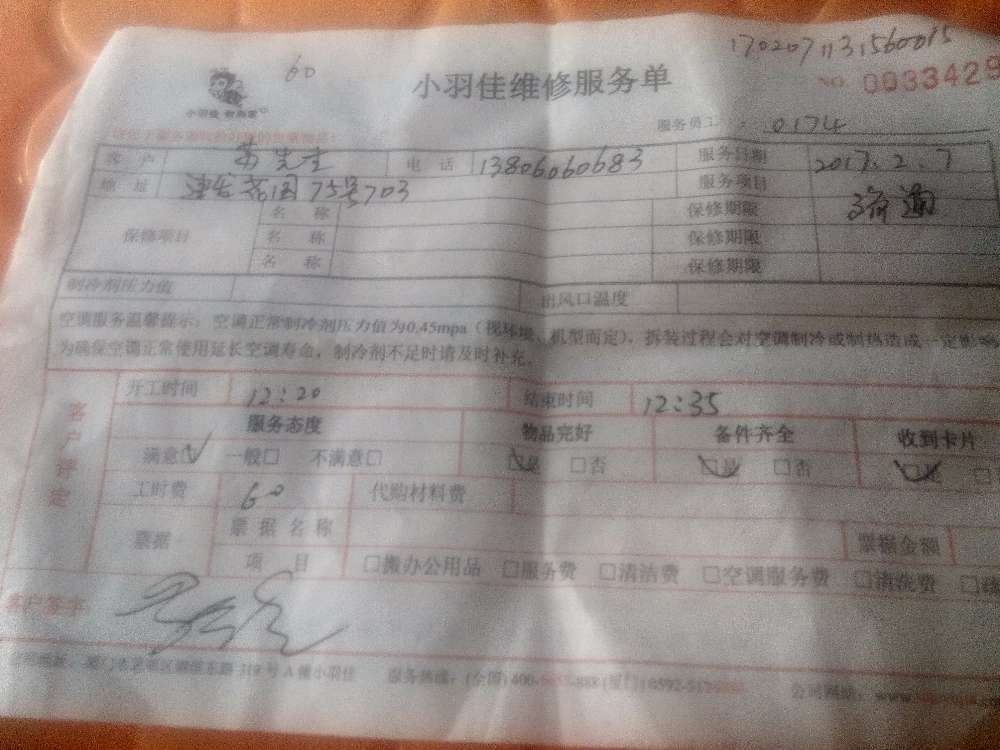 60
17020711131560015
小羽佳维修服务单
NO 0033429
小羽佳
服务员工: 0174
客 户 先生 电 话 13806060683 服务日期 2017.2.7
地 址 花园75号703 服务项目 通
保修项目 名 称 保修期限
名 称 保修期限
名 称 保修期限
制冷剂压力值 出风口温度
空调服务温馨提示：空调正常制冷剂压力值为0.45mpa（视环境、机型而定），拆装过程会对空调制冷或制热造成一定影响
为确保空调正常使用延长空调寿命，制冷剂不足时请及时补充。
客户评定
开工时间 12:20 结束时间 12:35
服务态度 物品完好 备件齐全 收到卡片
满意☑ 一般□ 不满意□ ☑是 □否 ☑是 □否 ☑是 □
工时费 60 代购材料费
票据 票据名称 票据金额
项 目 □搬办公用品 □服务费 □清洁费 □空调服务费 □清洗费
客户签字
319号A幢小羽佳 服务热线：(全国)400- -888 (厦门)0592-51 公司网站：www.